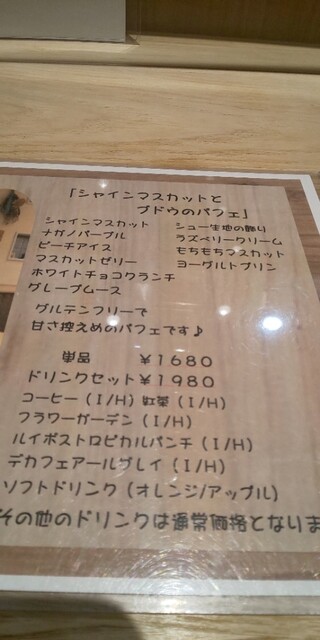 「シャインマスカットと
ブドウのパフェ」
シャインマスカット
ナガノパープル
ピーチアイス
マスカットゼリー
ホワイトチョコクランチ
グレープムース
シュー生地の飾り
ラズベリークリーム
もちもちマスカット
ヨーグルトプリン
グルテンフリーで
甘さ控えめのパフェです♪
単品 ¥1680
ドリンクセット¥1980
コーヒー（I/H）紅茶（I/H）
フラワーガーデン（I/H）
ルイボストロピカルパンチ（I/H）
デカフェアールグレイ（I/H）
ソフトドリンク（オレンジ/アップル）
その他のドリンクは通常価格となりま